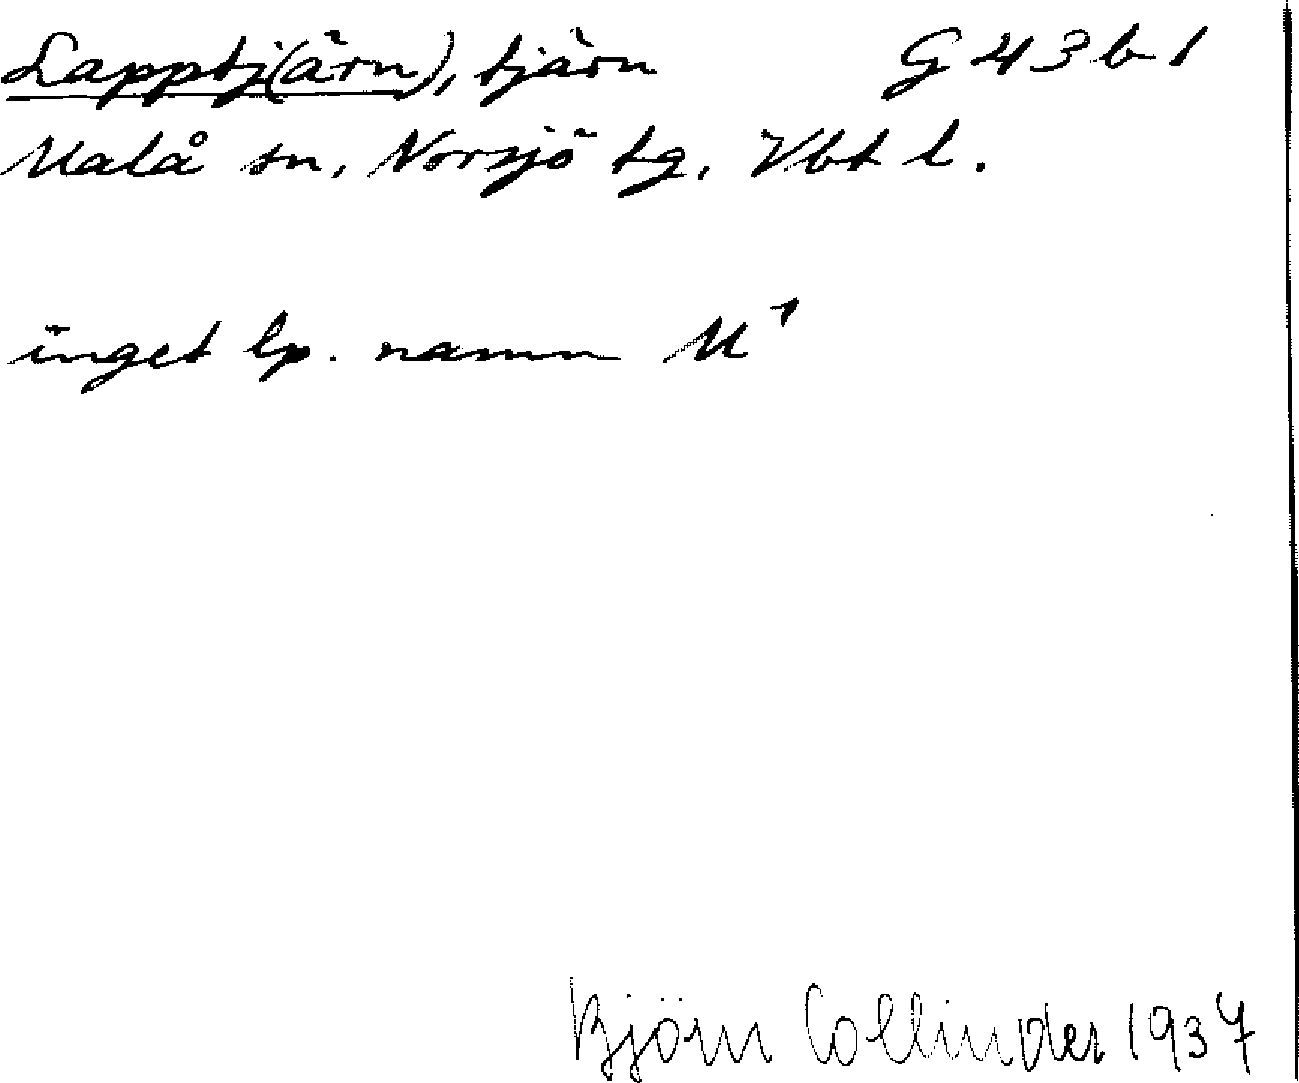 Lapptj(ärn), tjärn G 43 b 1
Malå sn, Norsjö tg, Vbt l.
inget lp. namn M1
Björn Collinder 1937